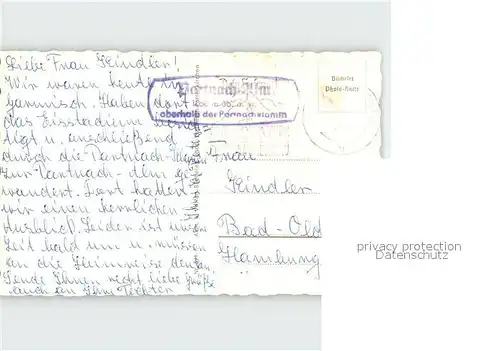 Liebe Frau Heindler!
Wir waren heute in
Garmisch. Haben dort
das Eisstadium
tigt u. anschließend
durch die Partnach-
zur Partnach-Alm ge
wandert. Dort hatten
wir einen herrlichen
Ausblick. Leider ist unsere
Zeit bald um u. müssen
an die Heimreise denken.
Sende Ihnen recht liebe Grüße
auch an Ihre Töchter
Partnach-Alm
oberhalb der Partnachklamm
Frau
Heindler
Bad-Old
Hamburg
privacy protection
Datenschutz